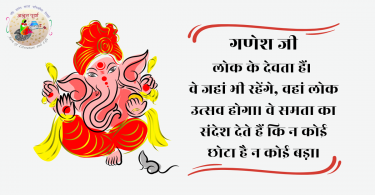 गणेश जी
लोक के देवता हैं।
वे जहां भी रहेंगे, वहां लोक
उत्सव होगा। वे समता का
संदेश देते हैं कि न कोई
छोटा है न कोई बड़ा।